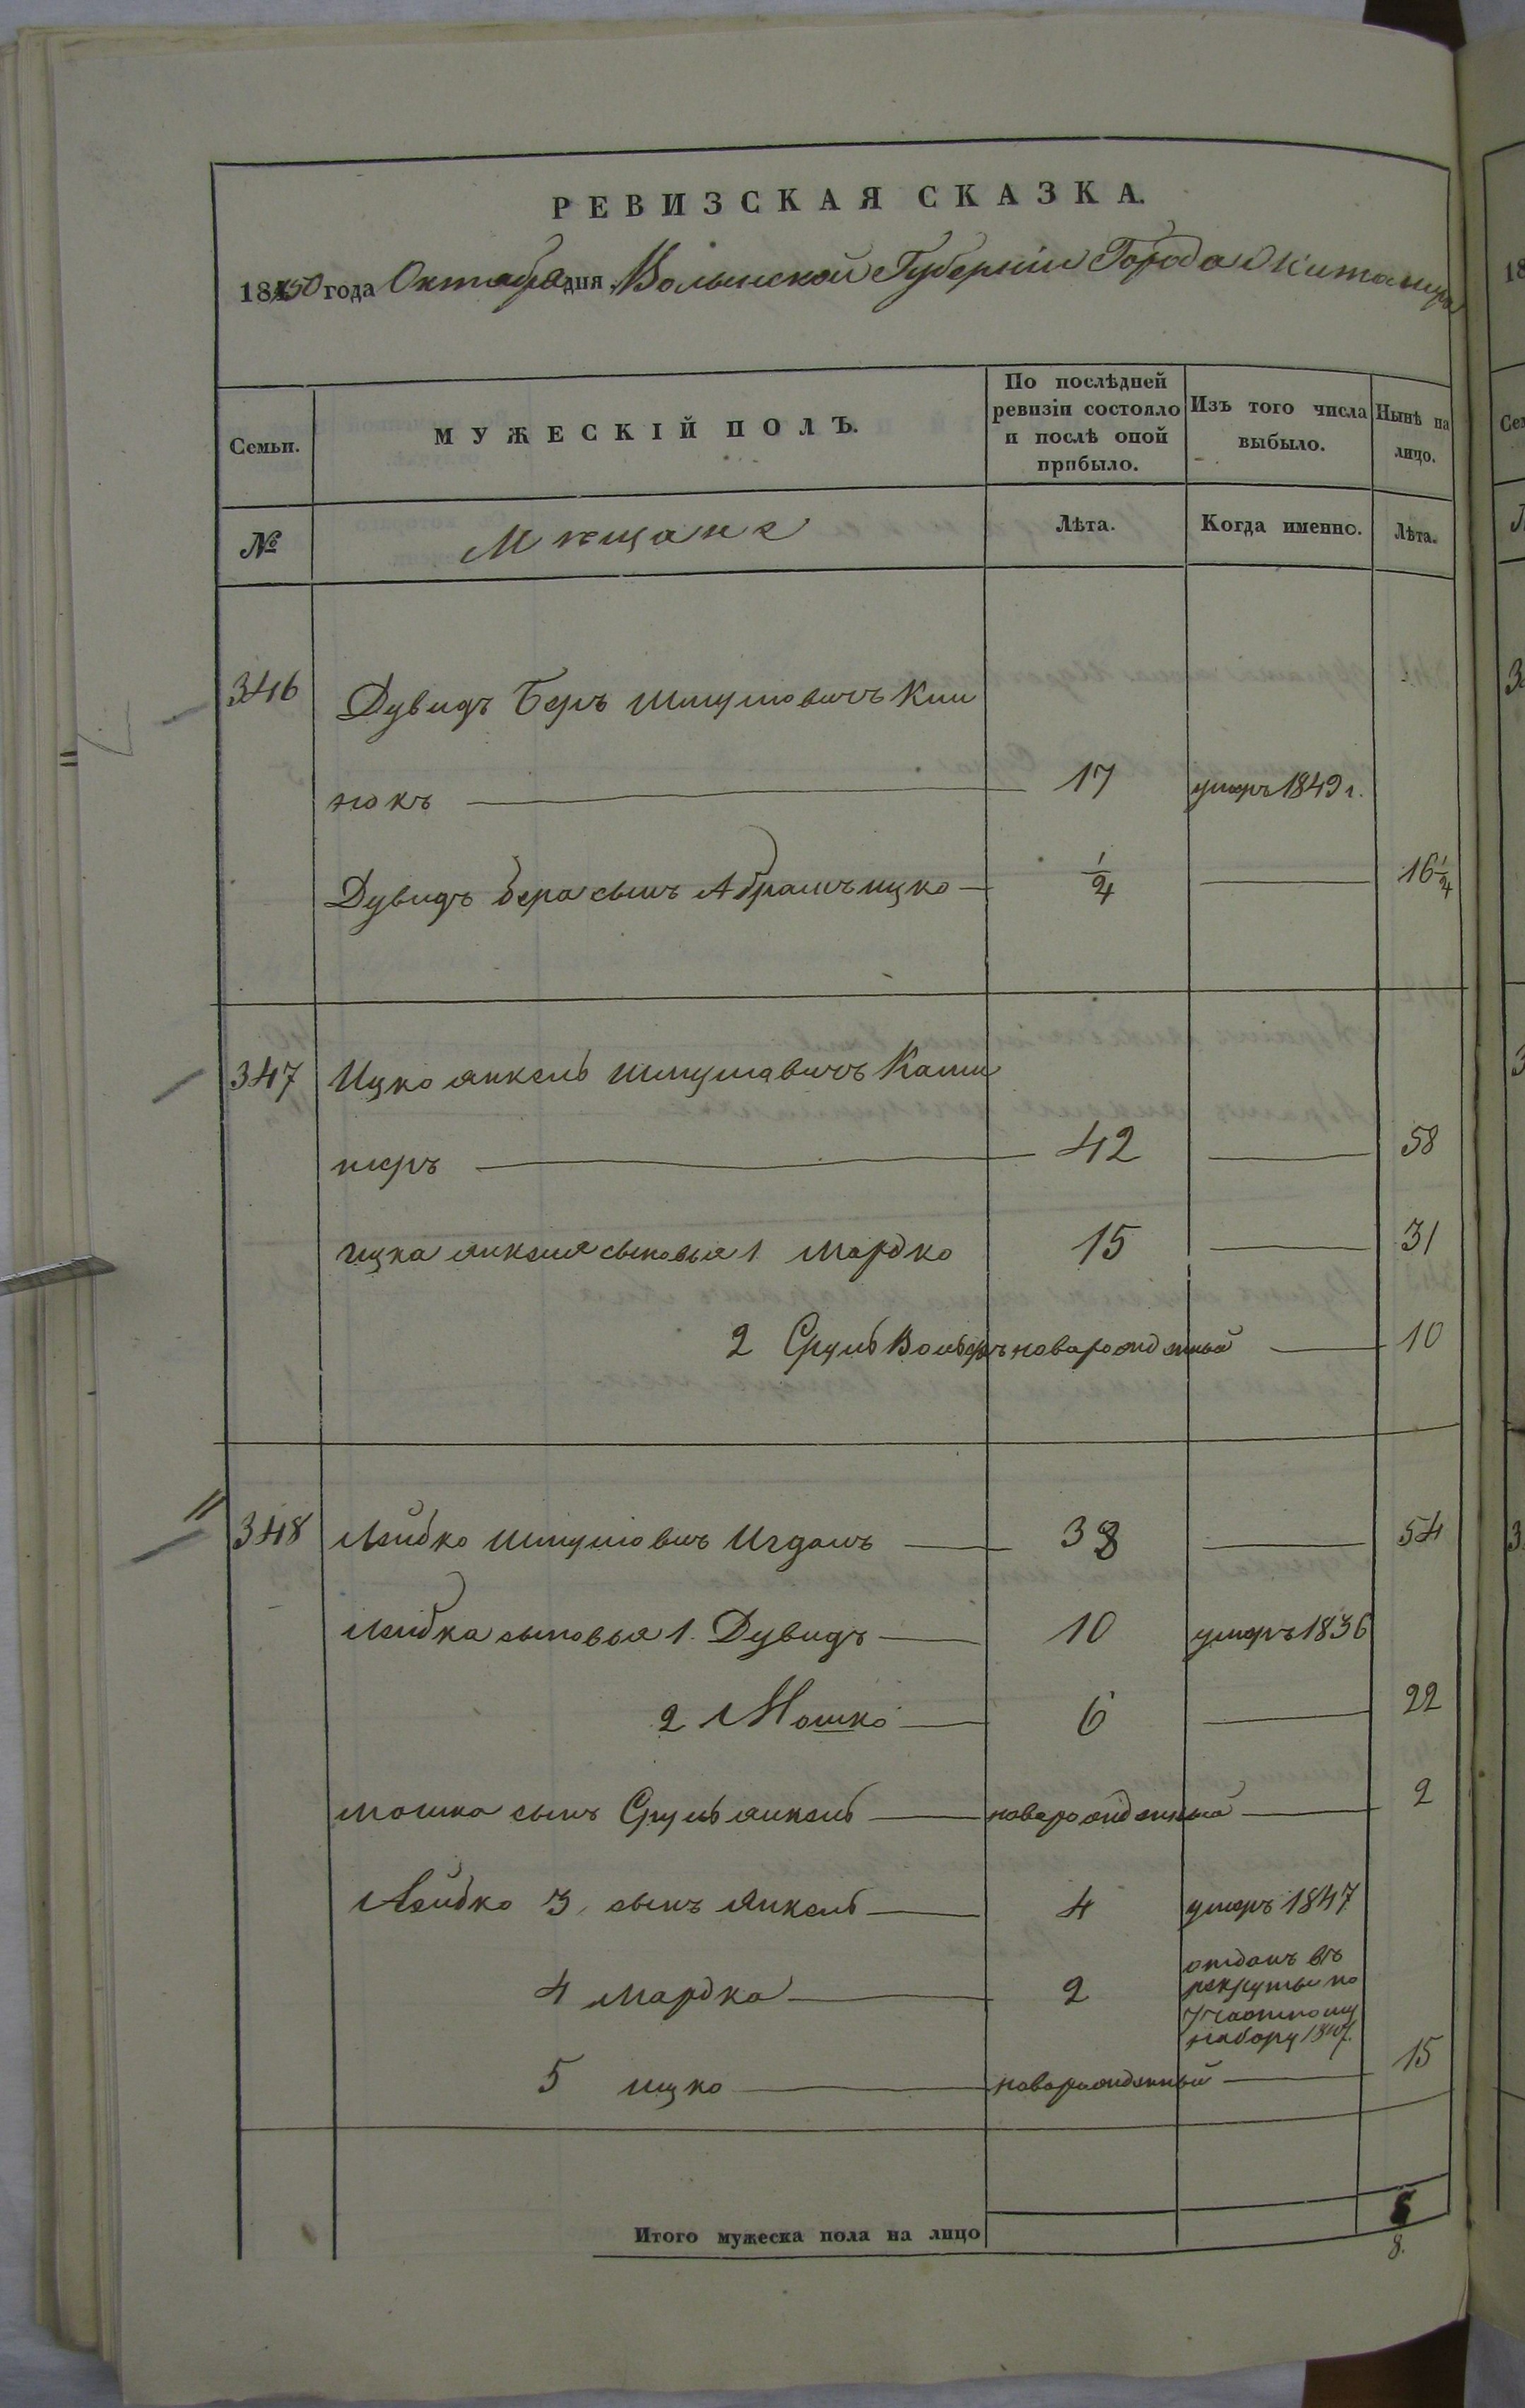 РЕВИЗСКАЯ СКАЗКА.
1850 года Октября дня Волынской Губерніи Города Житомира
Семьи. МУЖЕСКІЙ ПОЛЪ. По послѣдней ревизіи состояло и послѣ оной прибыло. Изъ того числа выбыло. Нынѣ на лицо.
№ Мещане Лѣта. Когда именно. Лѣта.
346 Дувидъ Беръ Шмулиовичъ Кип
нокъ 17 умеръ 1849 г.
Дувидъ бера сынъ Абрамъ ицко 1/2 16 1/2
347 Ицко янкель Шмулиовичъ
42 58
ицка янкеля сыновья 1 Мордко 15 31
2 Сруль Вольфъ новорожденный 10
348 Лейбко Шмулиовичъ 38 54
Лейбка сыновья 1. Дувидъ 10 умеръ 1836
2 Мошко 6 22
Мошка сынъ Сруль янкель новорожденный 2
Лейбко 3, сынъ Янкель 4 умеръ 1847
4 Мордко 2 отданъ въ
рекруты по
частному
набору
5 ицко новорожденный 15
Итого мужеска пола на лицо 8
8.